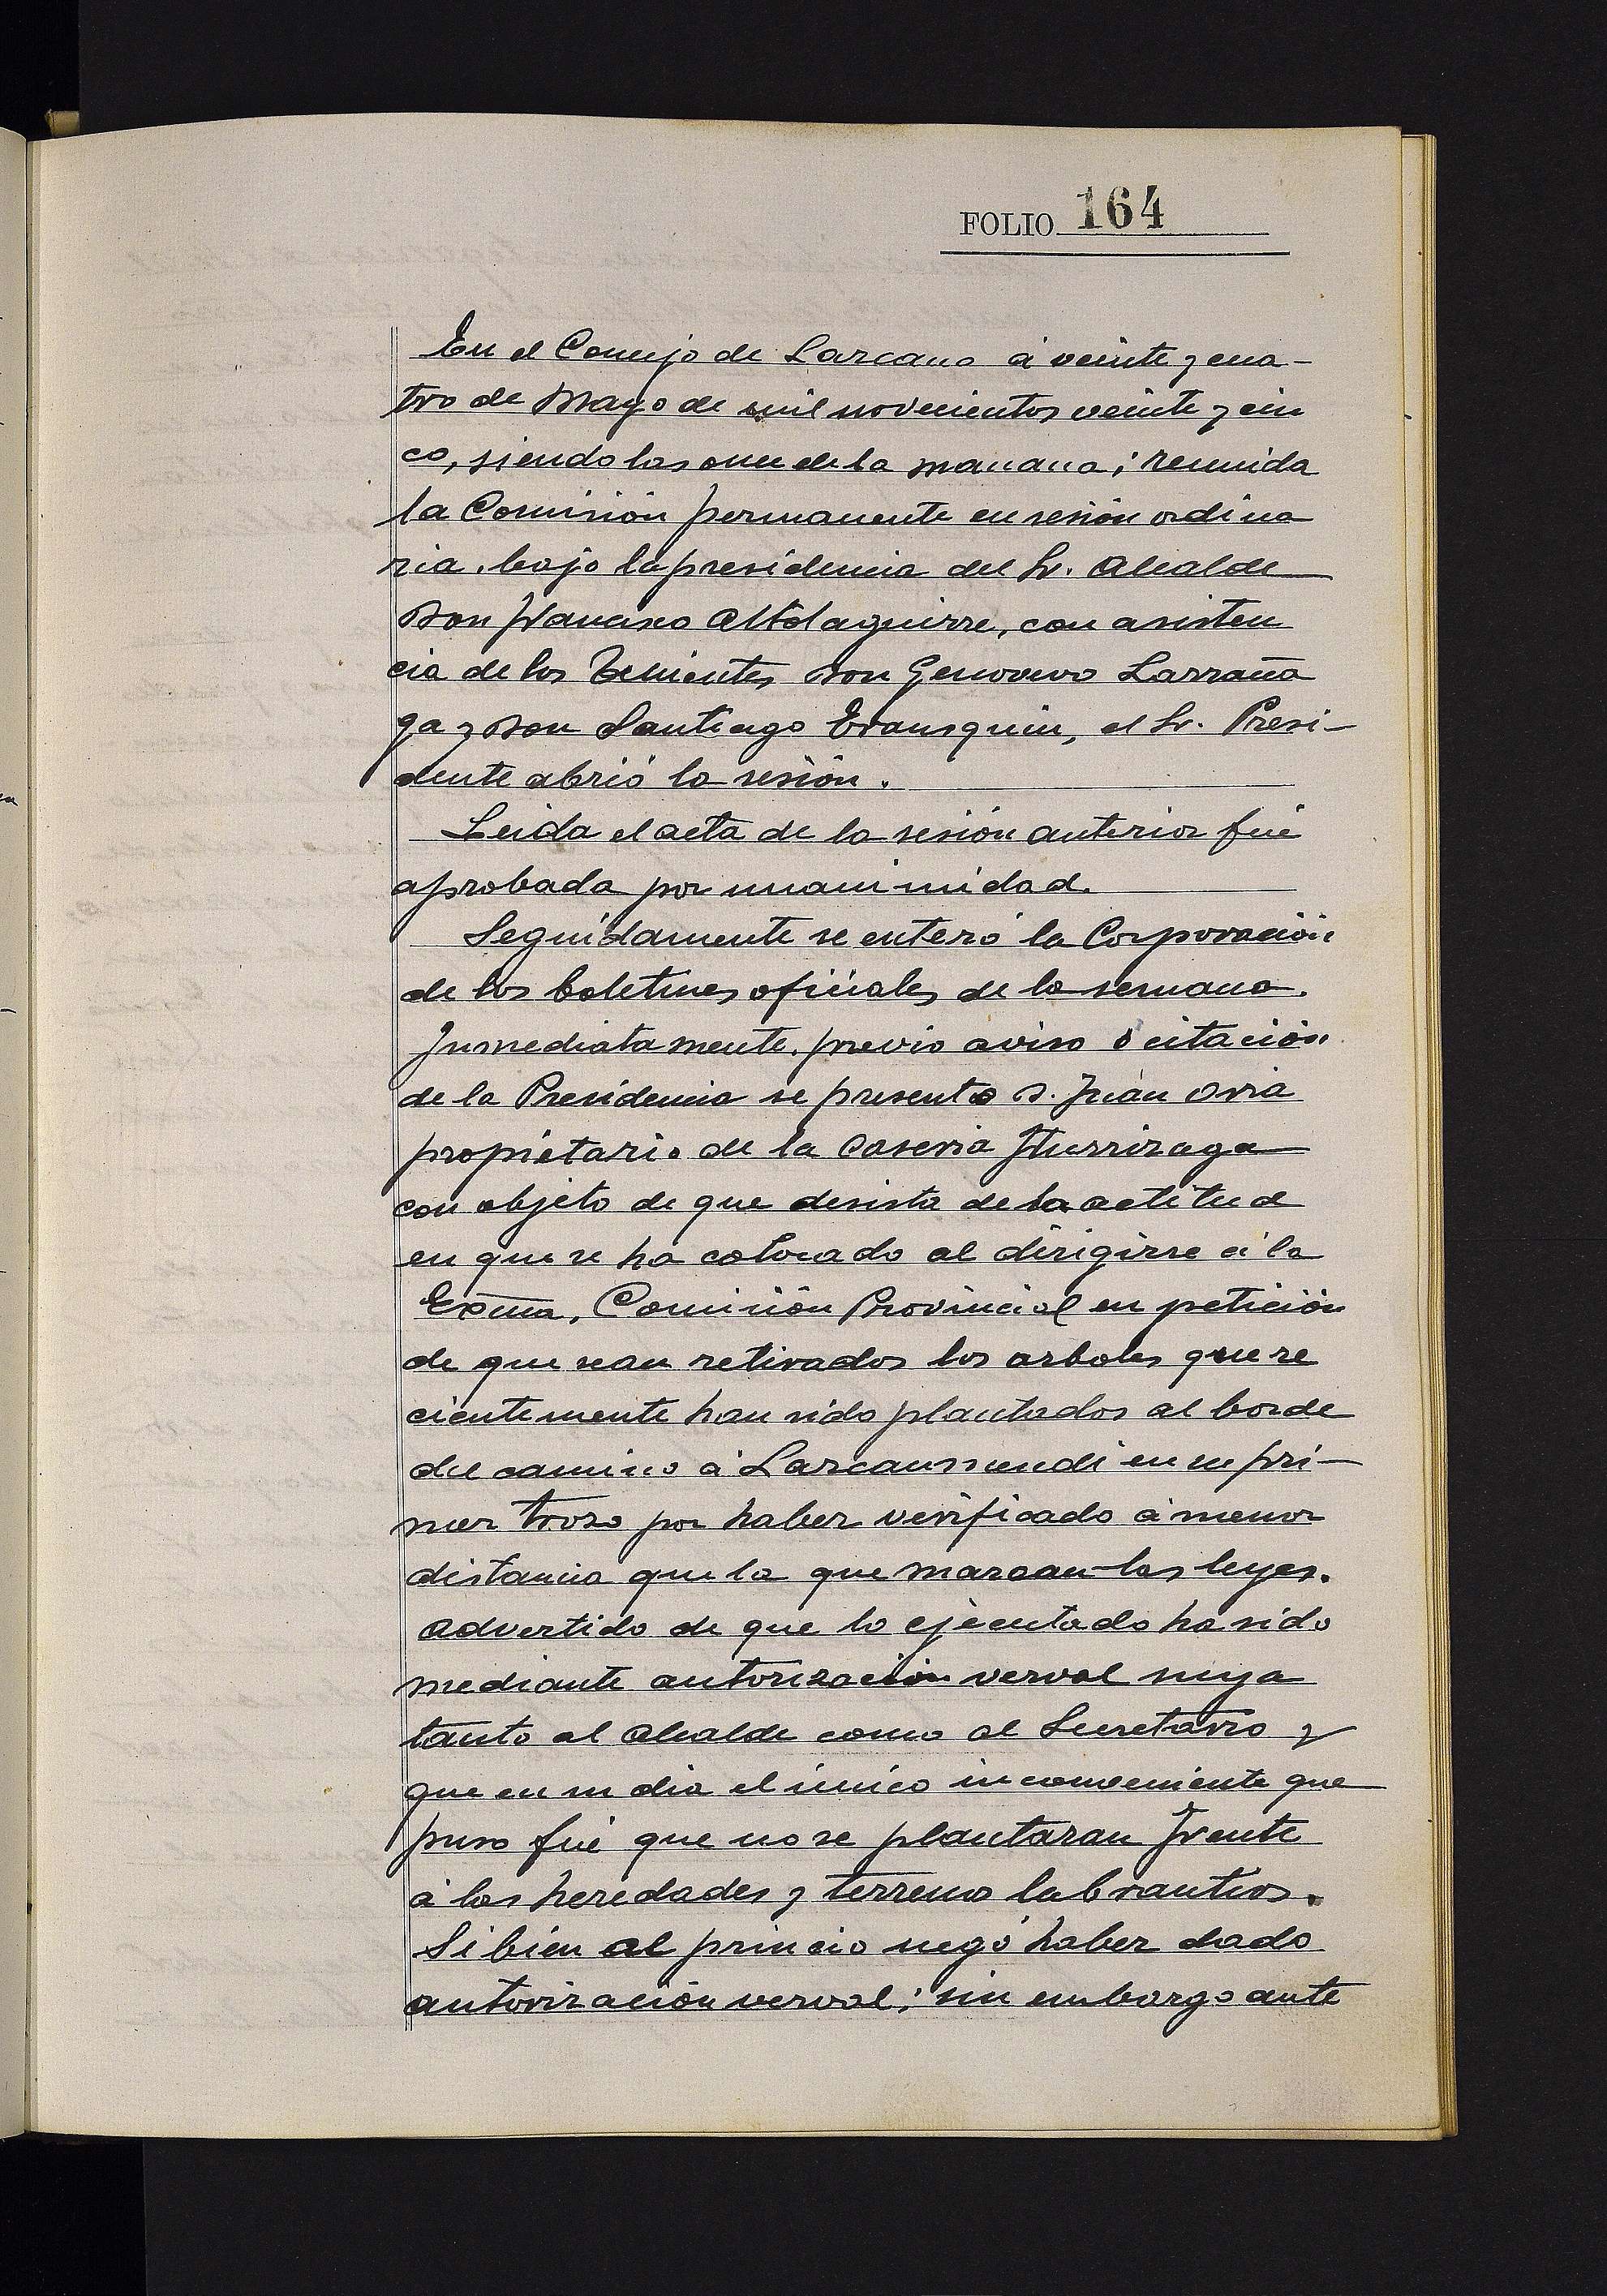 FOLIO 164
En el Concejo de Lazcano á veinte y cua-
tro de Mayo de mil novecientos veinte y cin
co, siendo las once de la manana; reunida
la Comisión permanente en sesión ordina
ria, bajo la presidencia del Sr. Alcalde
Don Francisco Altolaguirre, con asisten
cia de los Tenientes Don Genovevo Larraña
ga y Don Santiago Erausquin, el Sr. Presi-
dente abrió la sesión.
Leida el acta de la sesión anterior fué
aprobada por unanimidad.
Seguídamente se enteró la Corporación
de los boletines oficiales de la semana.
Inmediatamente, previo aviso ó citación
de la Presidencia se presentó D. Juan Oria
propietario de la caseria Iturrizaga
con objeto de que desista de la actitud
en que se ha colocado al dirigirse á la
Exma, Comisión Provincial en petición
de que sean retirados los arboles que re
cientemente han sido plantados al borde
del camino á Lazcaunmendi en su pri-
mer trozo por haber verificado á menor
distancia que la que marcan las leyes.
Advertido de que lo ejecutado ha sido
mediante autorización verval suya
tanto al Alcalde como al Secretario y
que en su dia el único inconveniente que
puso fué que no se plantaran frente
á las heredades y terreno labrantios.
Si bien al princio negó haber dado
autorización verval; sin embargo ante